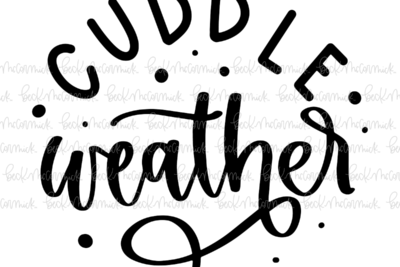 CUDDLE
weather